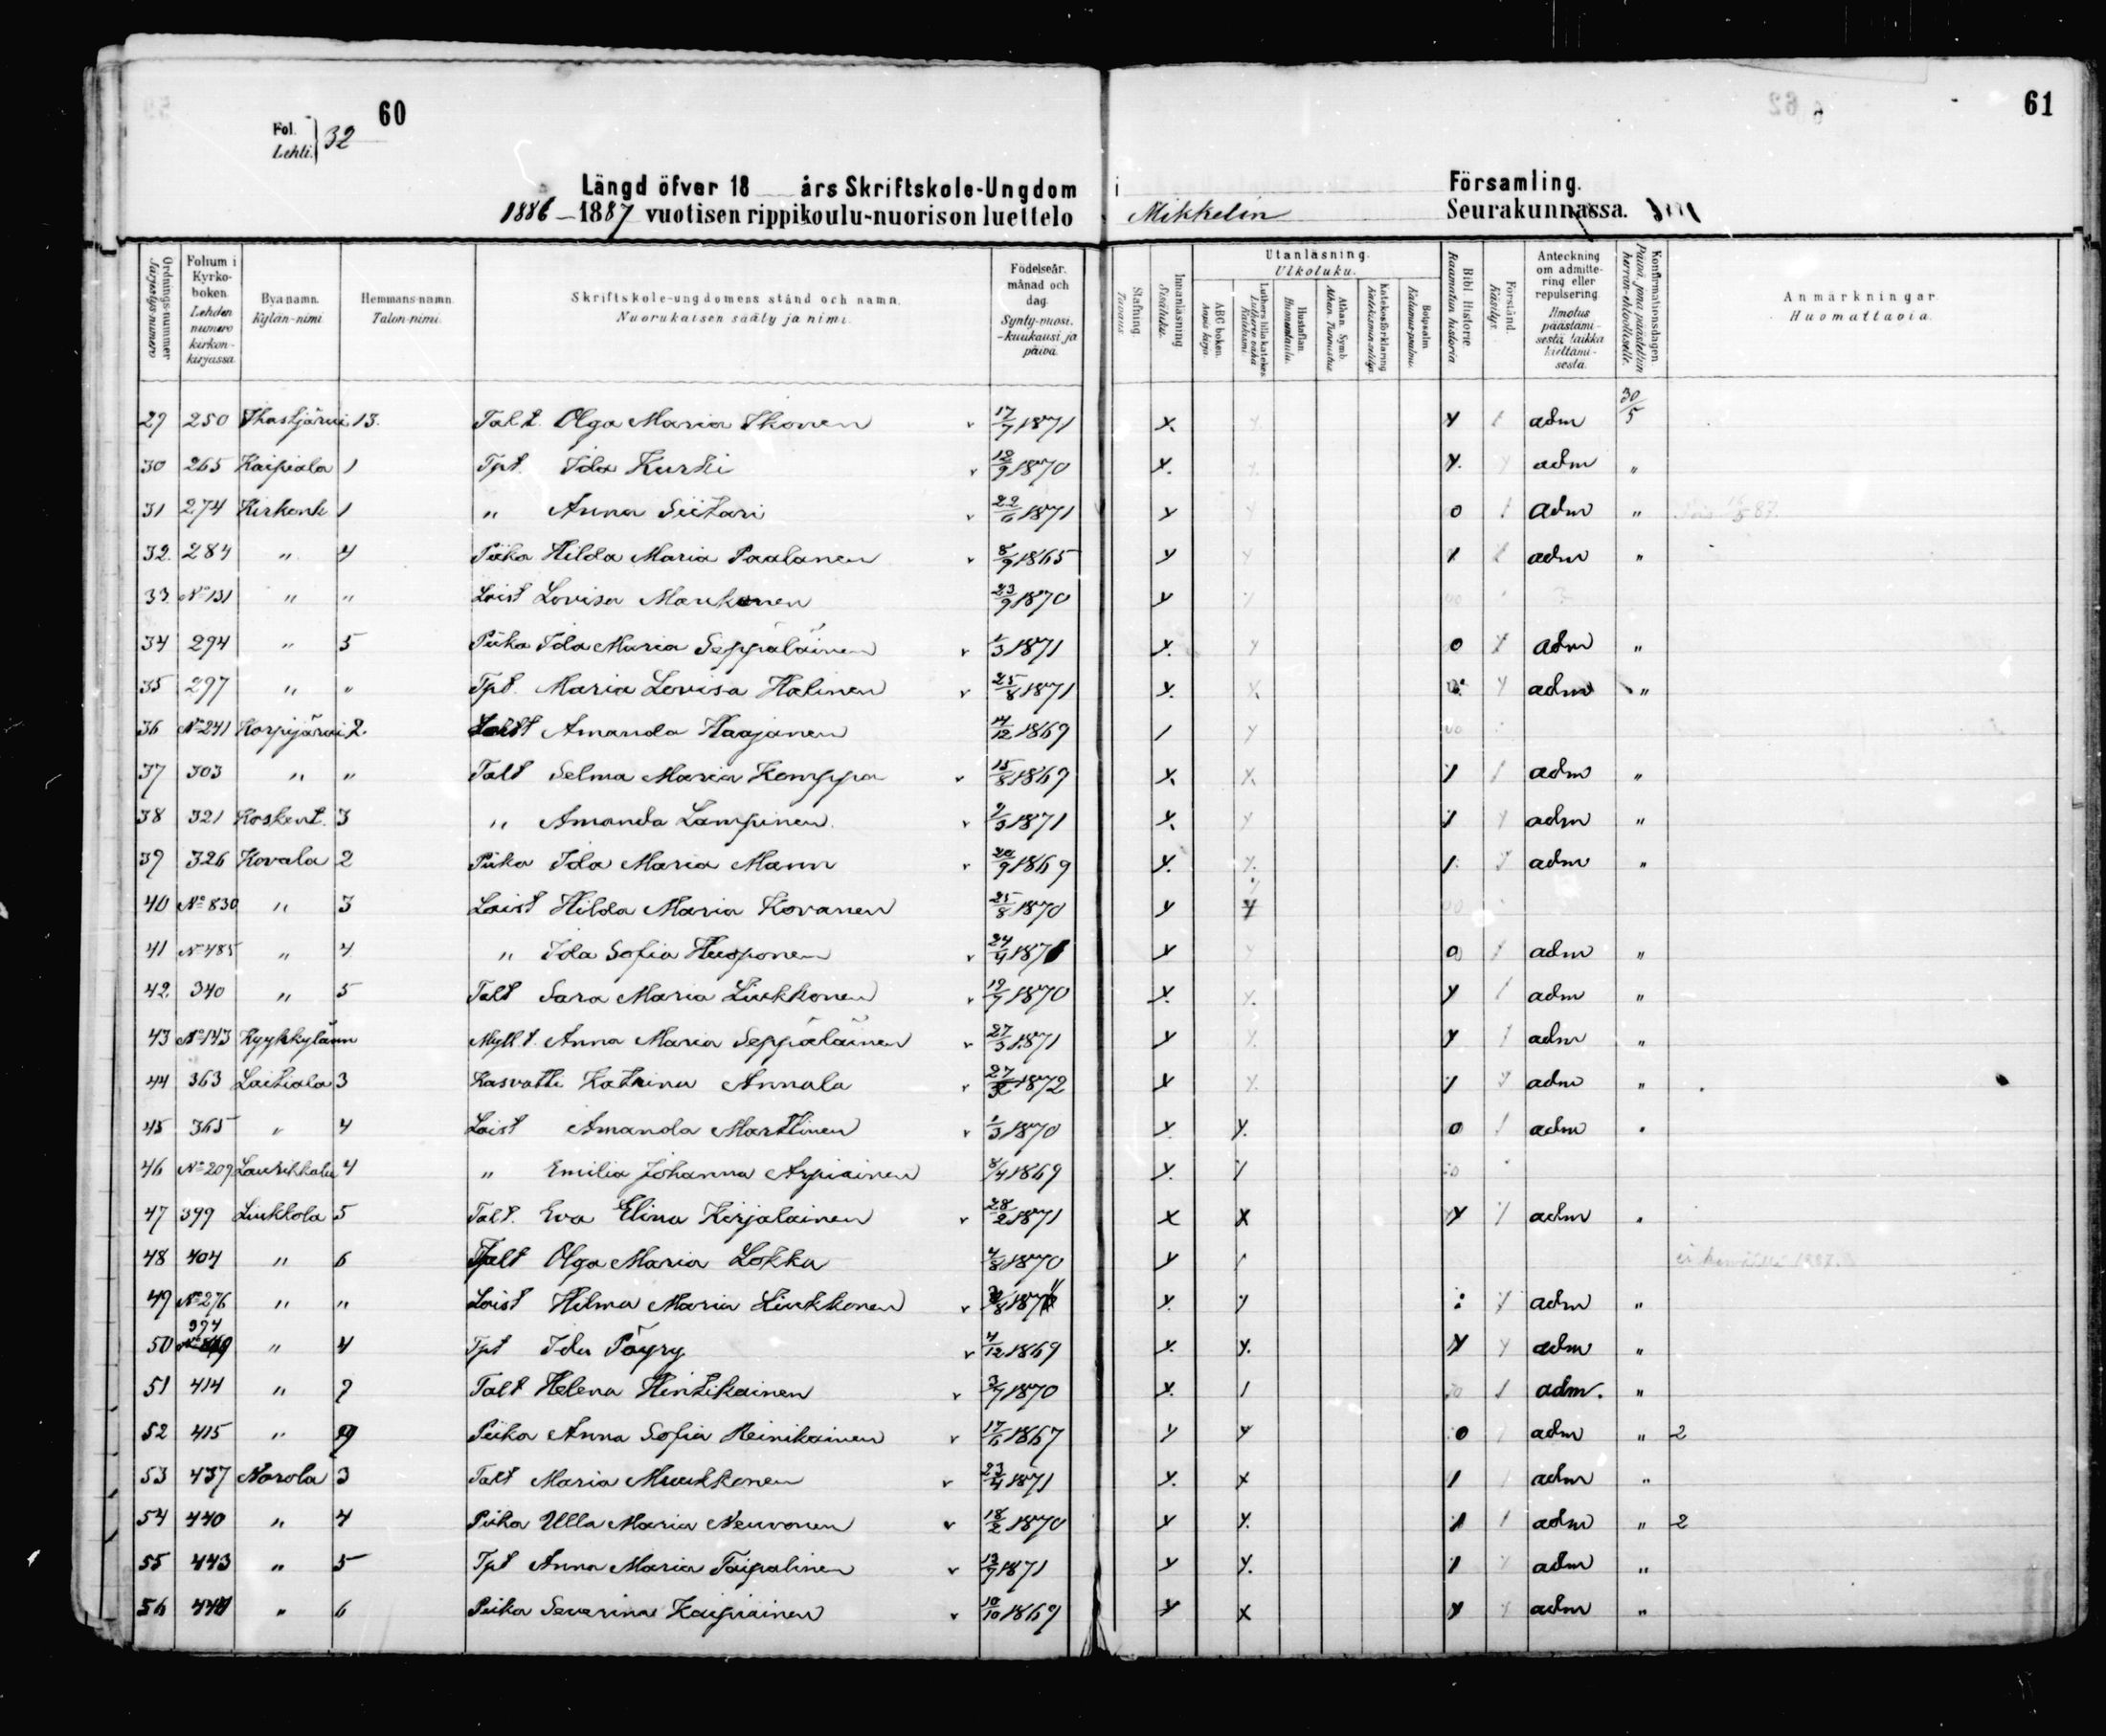 60
61
Fol. Lehti. } 32
Längd öfver 18 års Skriftskole-Ungdom i Församling.
1886–1887 vuotisen rippikoulu-nuorison luettelo Mikkelin Seurakunnassa.
Ordnings-nummer Järjestys-numero
Folium i Kyrko-boken. Lehden numero kirkon-kirjassa.
Byanamn. Kylän-nimi
Hemmans-namn. Talon-nimi.
Skriftskole-ungdomens stånd och namn. Nuorukaisen sääty ja nimi.
Födelseår. månad och dag. Synty-vuosi. -kuukausi ja päivä.
Stafning. Tavaus
Innanläsning Sisäluku.
Utanläsning. Ulkoluku.
ABC boken. Aapis kirja.
Luthers lilla katekes. Lutherin vähä Katekismi.
Hustaflan. Huoneentaulu.
Athan. Symb. Athan. Tunnustus
Katekesförklaring Katekismus-selitys.
Botpsalm. Katumus-psalmi.
Bibl. Historie. Raamatun historia
Förstånd. Käsitys.
Anteckning om admittering eller repulsering. Ilmotus päästämisestä taikka kieltämisestä.
Konfirmationsdagen. Päivä, jona päästettiin herran-ehtoolliselle.
Anmärkningar. Huomattavia.
29 250 Ihastjärvi 13. Talt. Olga Maria Ikonen v 17/7 1871 x y y 1 adm 30/5
30 265 Kaipiala 1 Tpt. Ida Kurki v 12/9 1870 x. y. y. y adm "
31 274 Kirkonk 1 " Anna Siitari v 22/6 1871 y y 0 1 adm "
32. 284 " 4 Piika Hilda Maria Paalanen v 8/9 1865 y y 1 1 adm "
33. No 131 " " Loist Lovisa Maukonen 23/9 1870 y y
34 294 " 5 Piika Ida Maria Seppäläinen v 1/3 1871 y. y 0 y adm "
35 297 " " Tpt. Maria Lovisa Halinen v 25/8 1871 y. x y adm "
36 No 241 Korpijärvi 2. Loist Amanda Haajanen 14/12 1869 1 y
37 303 " " Talt Selma Maria Komppa v 15/8 1869 x x. 1 1 adm "
38 321 Koskent. 3 " Amanda Lampinen. v 2/3 1871 y. y 1 y adm "
39 326 Kovala 2 Piika Ida Maria Mann v 9 1869 y. y. 1 y adm "
40 No 830 " 3 Loist Hilda Maria Kovanen 25/8 1870 y y
41 No 485 " 4 " Ida Sofia Huoponen v 24/4 1871 y y 0 1 adm "
42 340 " 5 Talt Sara Maria Liukkonen v 19/7 1870 y. y. y 1 adm "
43 No 143 Kyyhkylänn Myll.t. Anna Maria Seppäläinen v 27/3 1871 y y. y 1 adm "
44 363 Laitiala 3 Kasvatti Katrina Annala v 27/3 1872 y y. 1 y adm "
45 365 " 4 Loist Amanda Marttinen v 1/3 1870 y y. 0 1 adm "
46 No 209 Laurikkala 4 " Emilia Johanna Arpiainen 8/4 1869 y. y
47 399 Liukkola 5 Talt. Eva Elina Kirjalainen v 28/2 1871 x x y y adm "
48 404 " 6 Talt Olga Maria Lokka 4/8 1870 y 1
49 No 276 " " Loist Hilma Maria Liukkonen v 8 187 y. y y adm "
50 394 " 4 Tpt Ida Pöyry v 4/12 1869 y. y. y y adm "
51 414 " 7 Talt Helena Hintikainen v 3/7 1870 y. 1 1 adm. "
52 415 " 9 Piika Anna Sofia Reinikainen v 17/6 1867 y y 0 adm " 2
53 437 Norola 3 Talt Maria Muukkonen v 23/4 1871 y. x 1 1 adm "
54 440 " 4 Piika Ulla Maria Neuvonen v 18/2 1870 y y. 1 1 adm " 2
55 443 " 5 Tpt Anna Maria Taipalinen v 13/9 1871 y y. 1 y adm "
56 444 " 6 Piika Severina Kaipiainen v 10/10 1869 y x y y adm "